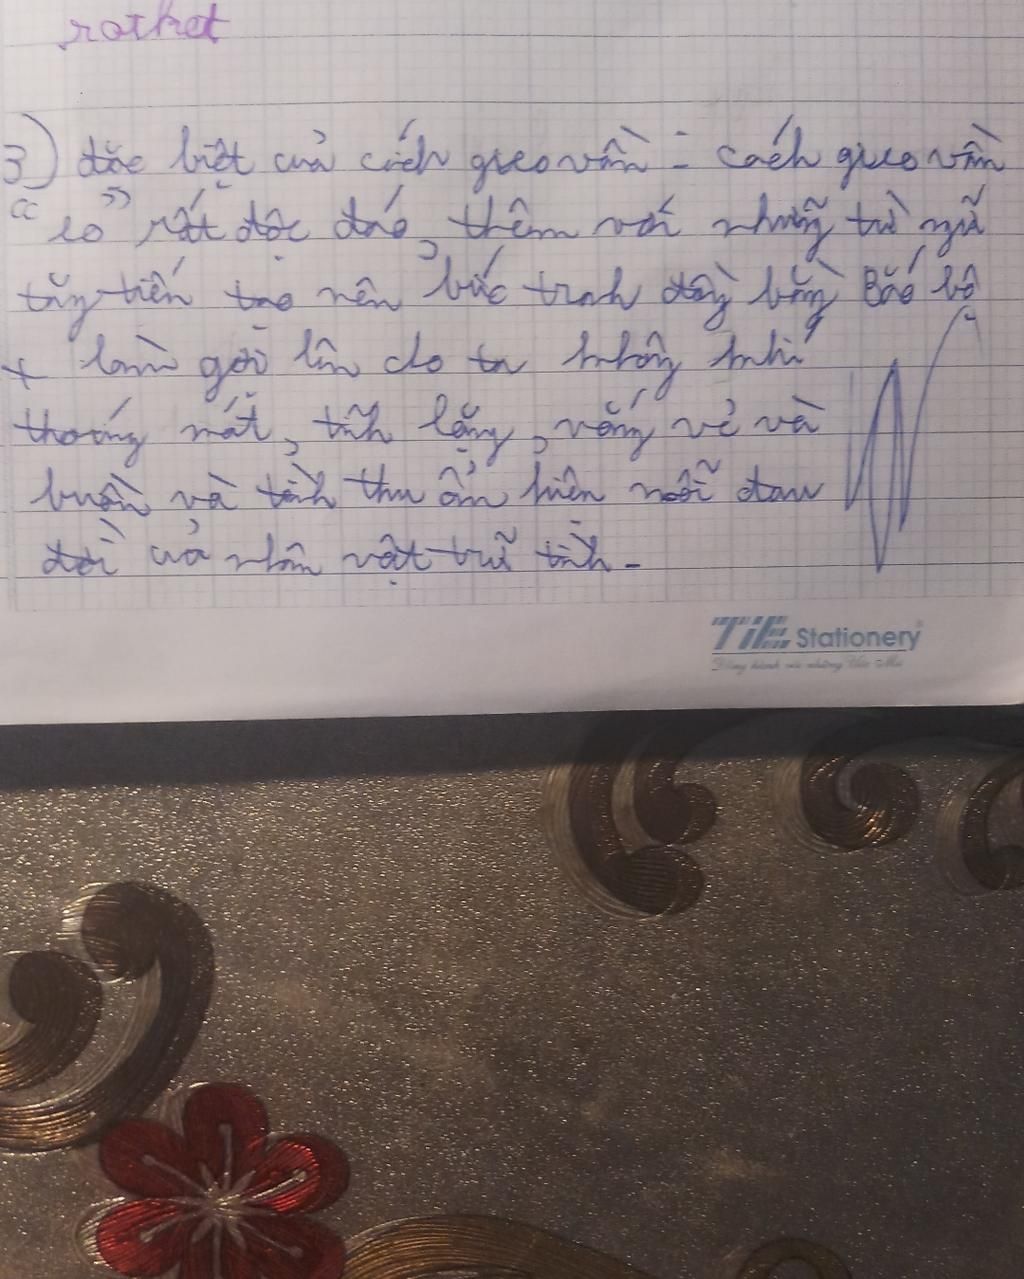 rothet
3) đặc biệt của cách gieo vần - cách gieo vần
"eo" rất độc đáo, thêm với những từ ngữ
tăng tiến tạo nên bức tranh đồng bằng Bắc bộ
+ làm gợi lên cho ta không khí
thoáng mát, tĩnh lặng, vắng vẻ và
buồn và tình thu ẩn hiện nỗi đau
đời của nhân vật trữ tình -
TiE Stationery